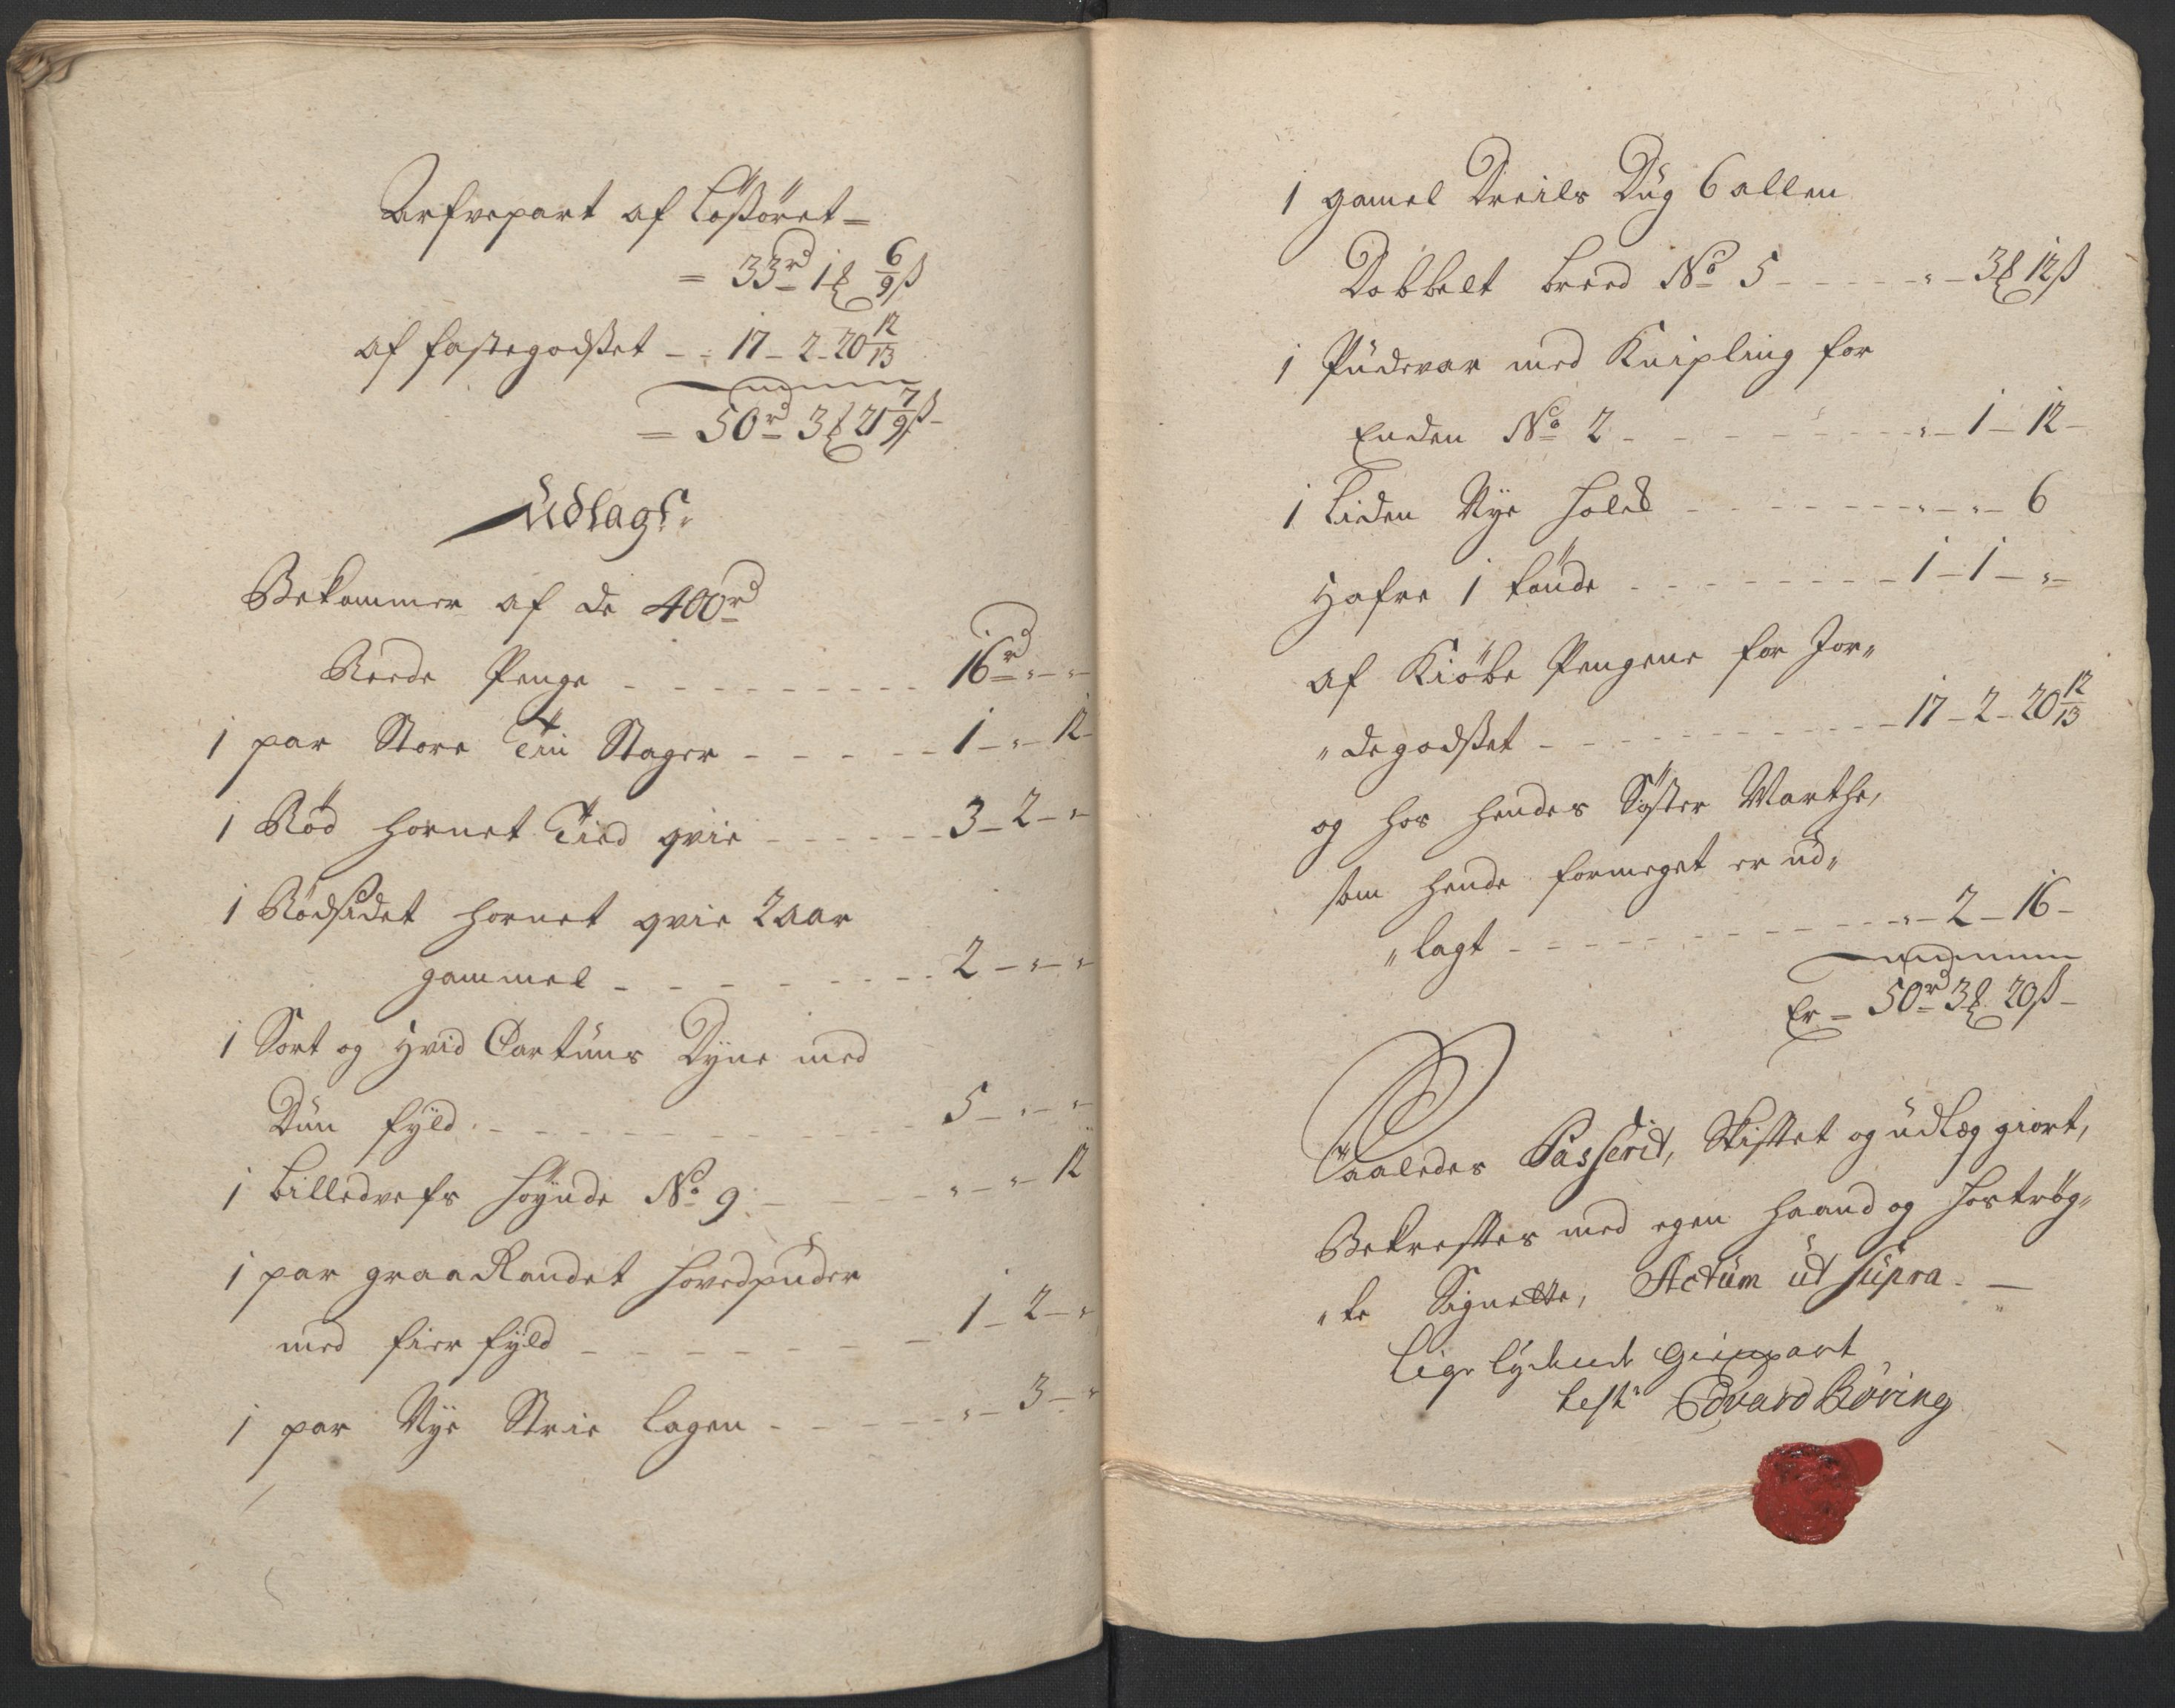 Arfvepart af Løssøret =
= 33rd 1 ℔ 6/9 ß
af fastegodsset - „ 17 - 2 - 20 12/13
= 50rd 3 ℔ 21 7/9 ß -
Udlagt.
Bekommer af de 400rd
Reede Penge - - - 16rd „ - „
1 par Store Tin Stager - - - 1 - „ - 12 -
1 Rød hornet Tied qvie - - - 3 - 2 - „
1 Rødsidet hornet qvie 2 aar
gammel - - - 2 - „ - „
1 Sort og Hvid Cartuns Dyne med
Dun fyld - - - 5 - „ - „
1 Billedvefs Høynde No 9 - - - „ - „ - 12
1 par graa Randet Hovedpuder
med fier fyld - - - 1 - 2 - „
1 par Nye Strie Lagen - - - „ - 3 - „
1 gamel Dreils Dug 6 allen
Dobbelt breed No 5 - - - „ - 3 ℔ 12 ß
1 Pudevar med Knipling for
Enden No 2 - - - „ - 1 - 12 -
1 Liden Nye Holck - - - „ - „ - 6
Hafre 1 tønde - - - 1 - 1 - „ -
af Kiøbe Pengene for Jor„
„degodsset - - - 17 - 2 - 20 12/13
og hos hendes Søster Marthe,
som hende formeget er ud„
„lagt - - - „ - 2 - 16 -
Er = 50rd 3 ℔ 20 ß -
Saaledes Passerit, Skiftet og udlæg giort,
Bekreftes med egen Haand og Hostrøg„
„te Signette, Actum ut supra. -
Lige lydende Gienpart
test: Edvard Røring